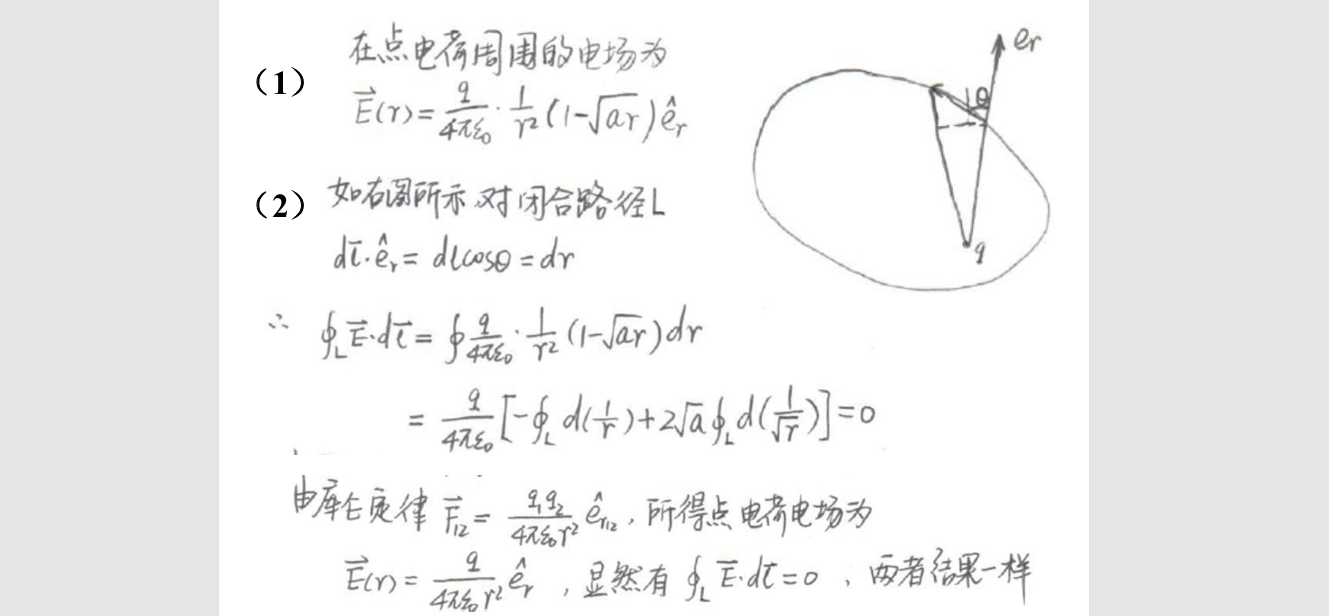 (1) 在点电荷周围的电场为
E⃗(r)= q/4πε₀ · 1/r² (1-√ar) ê_r
(2) 如右图所示,对闭合路径L
dl⃗·ê_r = dlcosθ = dr
∴ ∮_L E⃗·dl⃗ = ∮ q/4πε₀ · 1/r² (1-√ar)dr
= q/4πε₀ [-∮_L d(1/r)+2√a ∮_L d(1/√r)]=0
由库仑定律 F⃗₁₂ = q₁q₂/4πε₀r² ê_r₁₂, 所得点电荷电场为
E⃗(r)= q/4πε₀r² ê_r, 显然有 ∮_L E⃗·dl⃗=0, 两者结果一样
e_r
θ
q